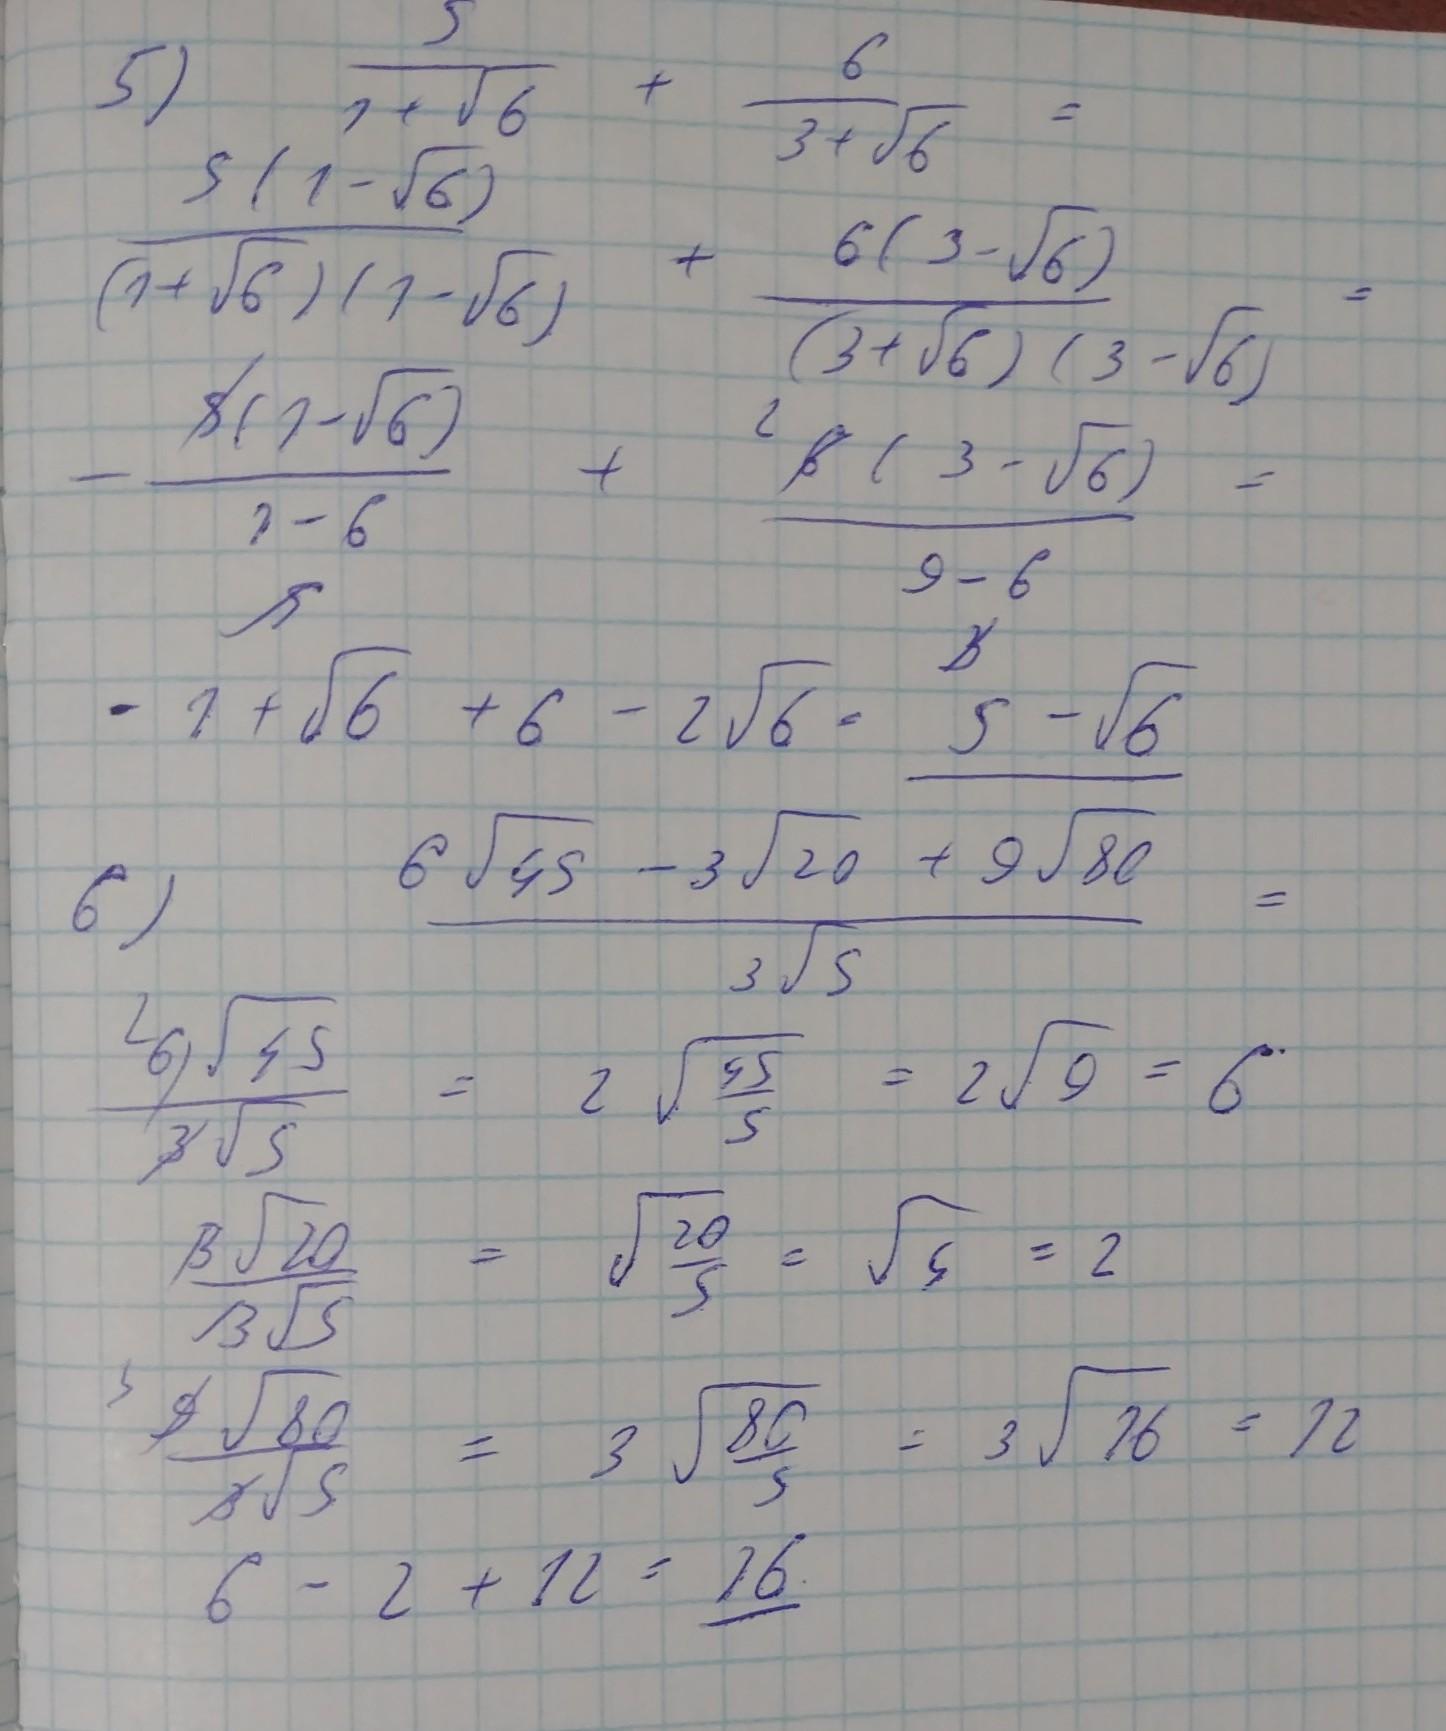 5) 5/(1+√6) + 6/(3+√6) =
5(1-√6)/((1+√6)(1-√6)) + 6(3-√6)/((3+√6)(3-√6)) =
- 5(1-√6)/(1-6) + 2 6(3-√6)/(9-6) =
5 3
- 1 + √6 + 6 - 2√6 = 5 - √6
6) (6√45 - 3√20 + 9√80)/(3√5) =
2 6√45/(3√5) = 2√(45/5) = 2√9 = 6
3√20/(3√5) = √(20/5) = √4 = 2
3 9√80/(3√5) = 3√(80/5) = 3√16 = 12
6 - 2 + 12 = 16